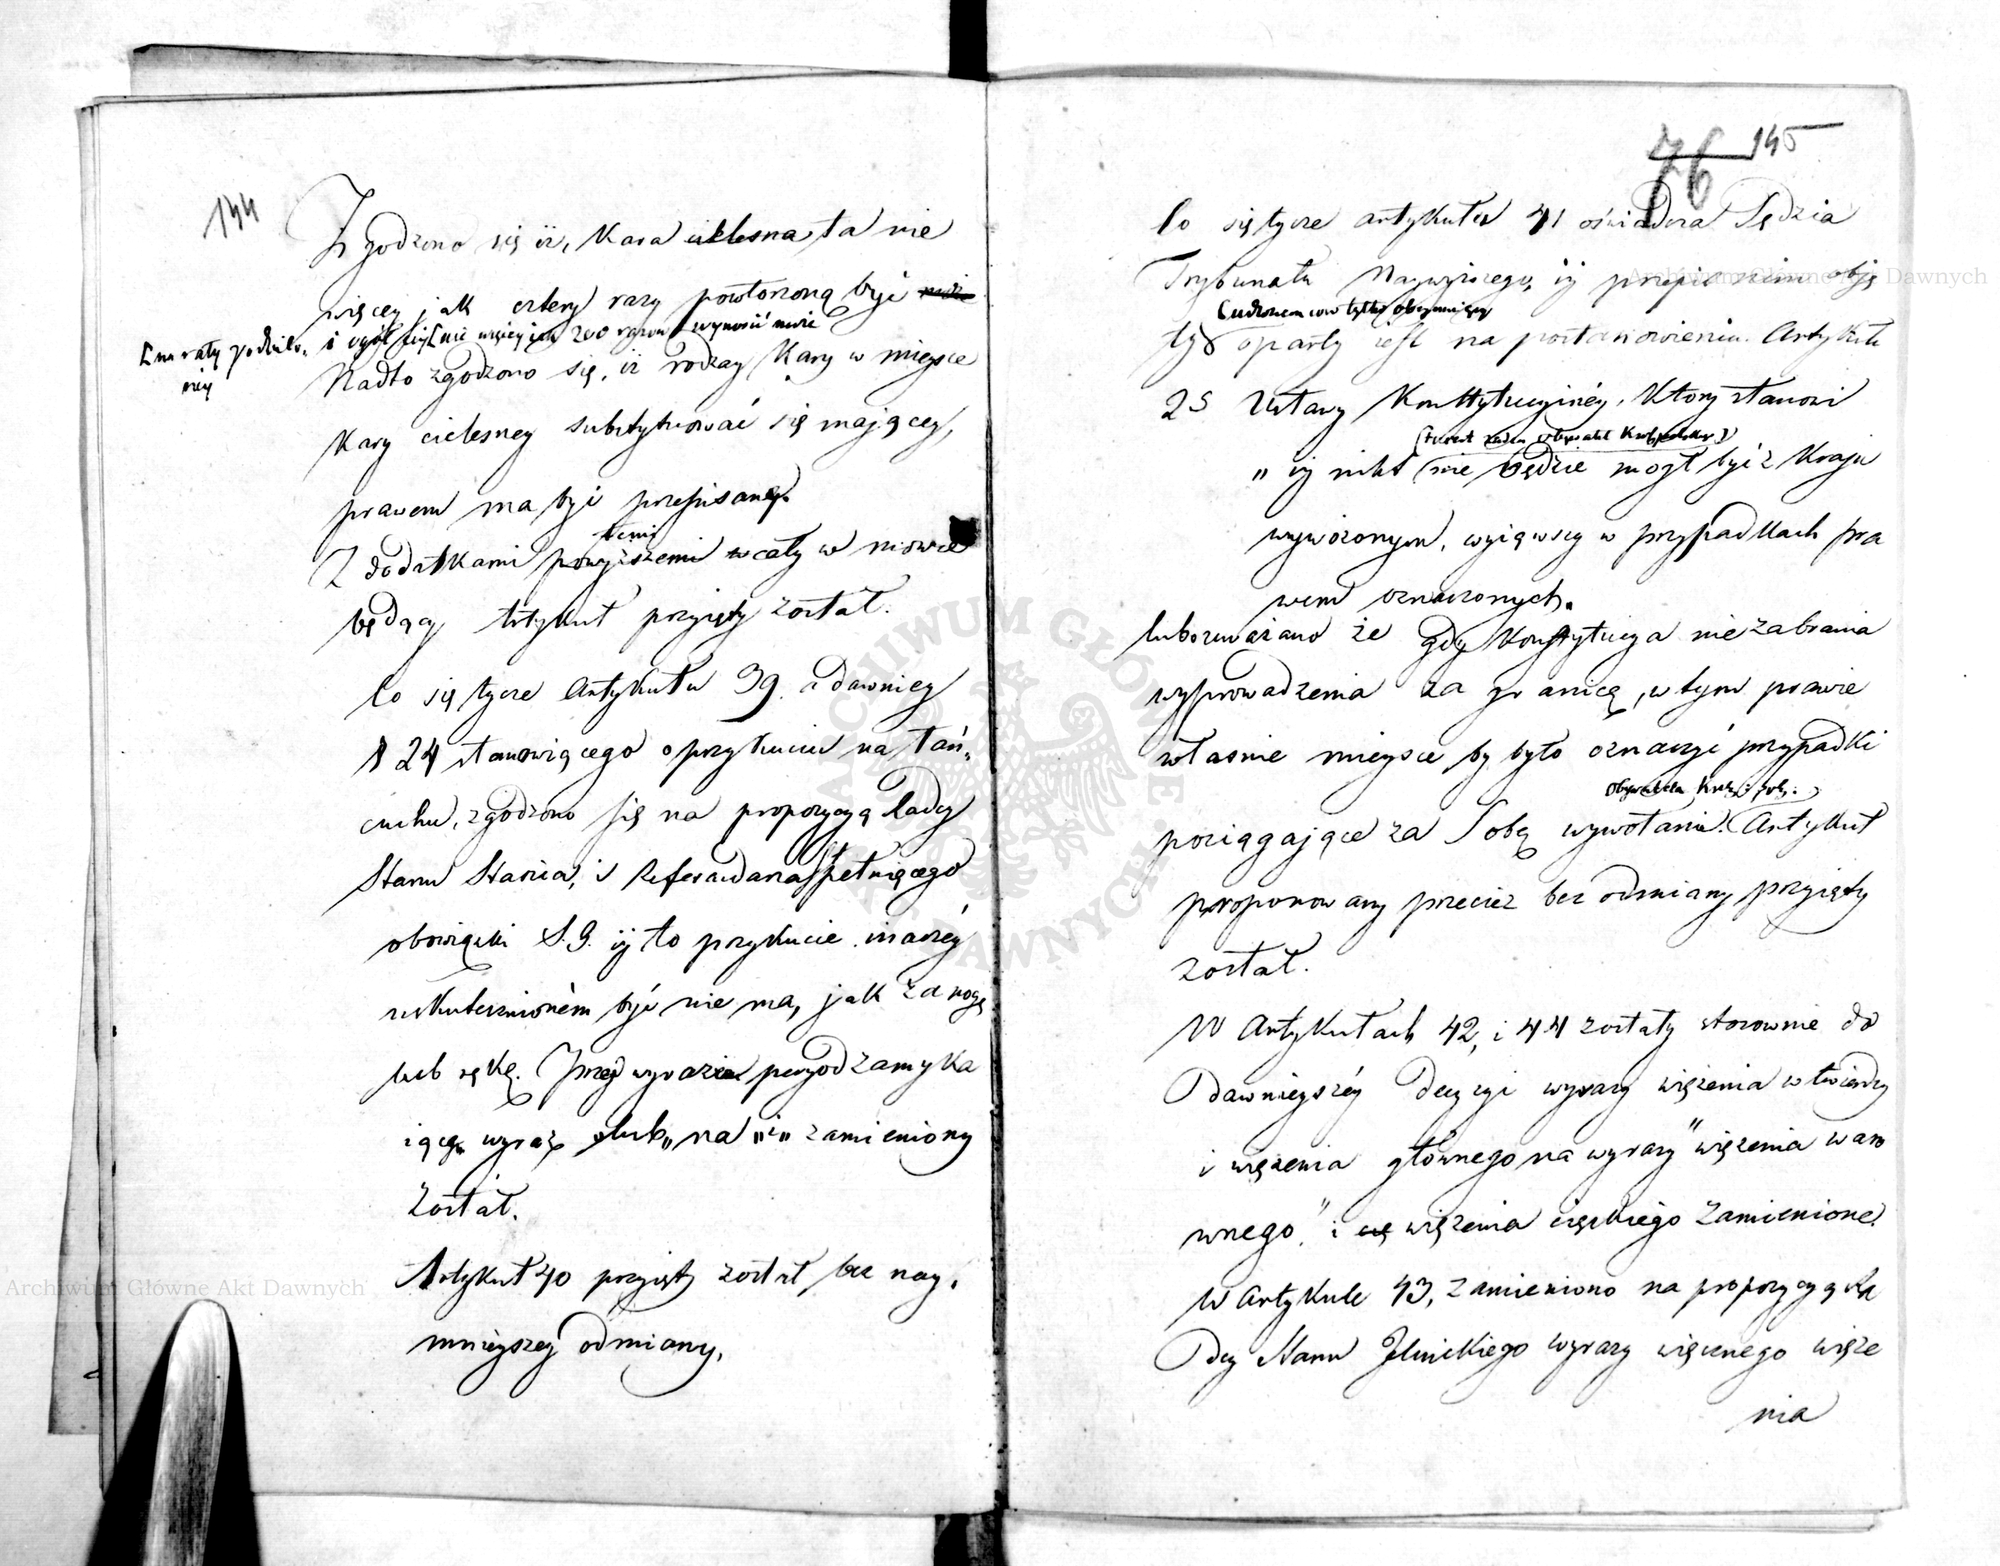 144
Zgodzono się iż, Kara cielesna ta nie
więcey jak cztery razy powtorzoną być może
i ogół cięć nie więcey jak 200 razow wynosić może
[na raty podzielo-
ney
Nadto zgodzono się, iż rodzay Kary w mieysce
Kary cielesney substytuować się maiącey,
prawem ma być przepisany.
temi
Z dodatkami powyższemi cały w mowie
będący Artykuł przyięty został.
Co się tycze Artykułu 39. a dawniey
§ 24 stanowiącego o przykuciu na łań-
cuchu, zgodzono się na propozycyą Radcy
Stanu Stasica, i Referendarza Stpełniącego
obowiązki S. G. iż to przykucie inaczéy
uskutecznioném być nie ma, jak za nogę
lub rękę. Przed wyrazem peryod zamyka
iącym wyraz „lub„ na „i„ zamieniony
został.
Artykuł 40 przyięty został bez nay-
mnieyszey odmiany.
76 145
Co się tycze artykułu 41 oświadcza Sędzia
Trybunału Naywyższego, iż przepis nim obję
Cudzoziemcow tylko obeymuiący
ty oparty iest na postanowieniu Artykułu
25 Ustawy Konstytucyinéy, Ktory stanowi
„ iż nikt nie będzie mogł być z Kraju
wywiezionym, wyiąwszy w przypadkach pra
wem oznaczonych.
lubo uważano że gdy Konstytucya nie zabrania
wyprowadzenia za granicę, w tym prawie
właśnie mieysce by było oznaczyć przypadki
obywatela Król: Pol:
pociągaiące za Sobą wywołanie. Artykuł
proponowany przecież bez odmiany przyięty
został.
W Artykułach 42, i 44 zostały stosownie do
Dawnieyszéy Decyzyi wyrazy więzienia w twierdzy
i więzienia głównego na wyrazy "więzienia waro
wnego" i więzienia cięzkiego zamienione.
W Artykule 43, zamieniono na propozycyą Ra
Dcy Stanu Jelinickiego wyrazy więcznego więzie
nia